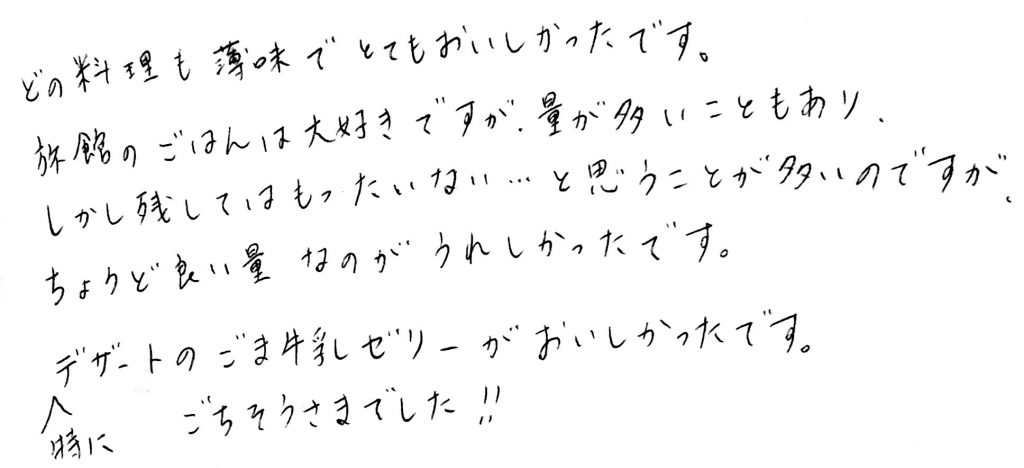 どの料理も薄味でとてもおいしかったです。
旅館のごはんは大好きですが、量が多いこともあり、
しかし残してはもったいない…と思うことが多いのですが、
ちょうど良い量なのがうれしかったです。
デザートのごま牛乳ゼリーがおいしかったです。
特に
ごちそうさまでした!!